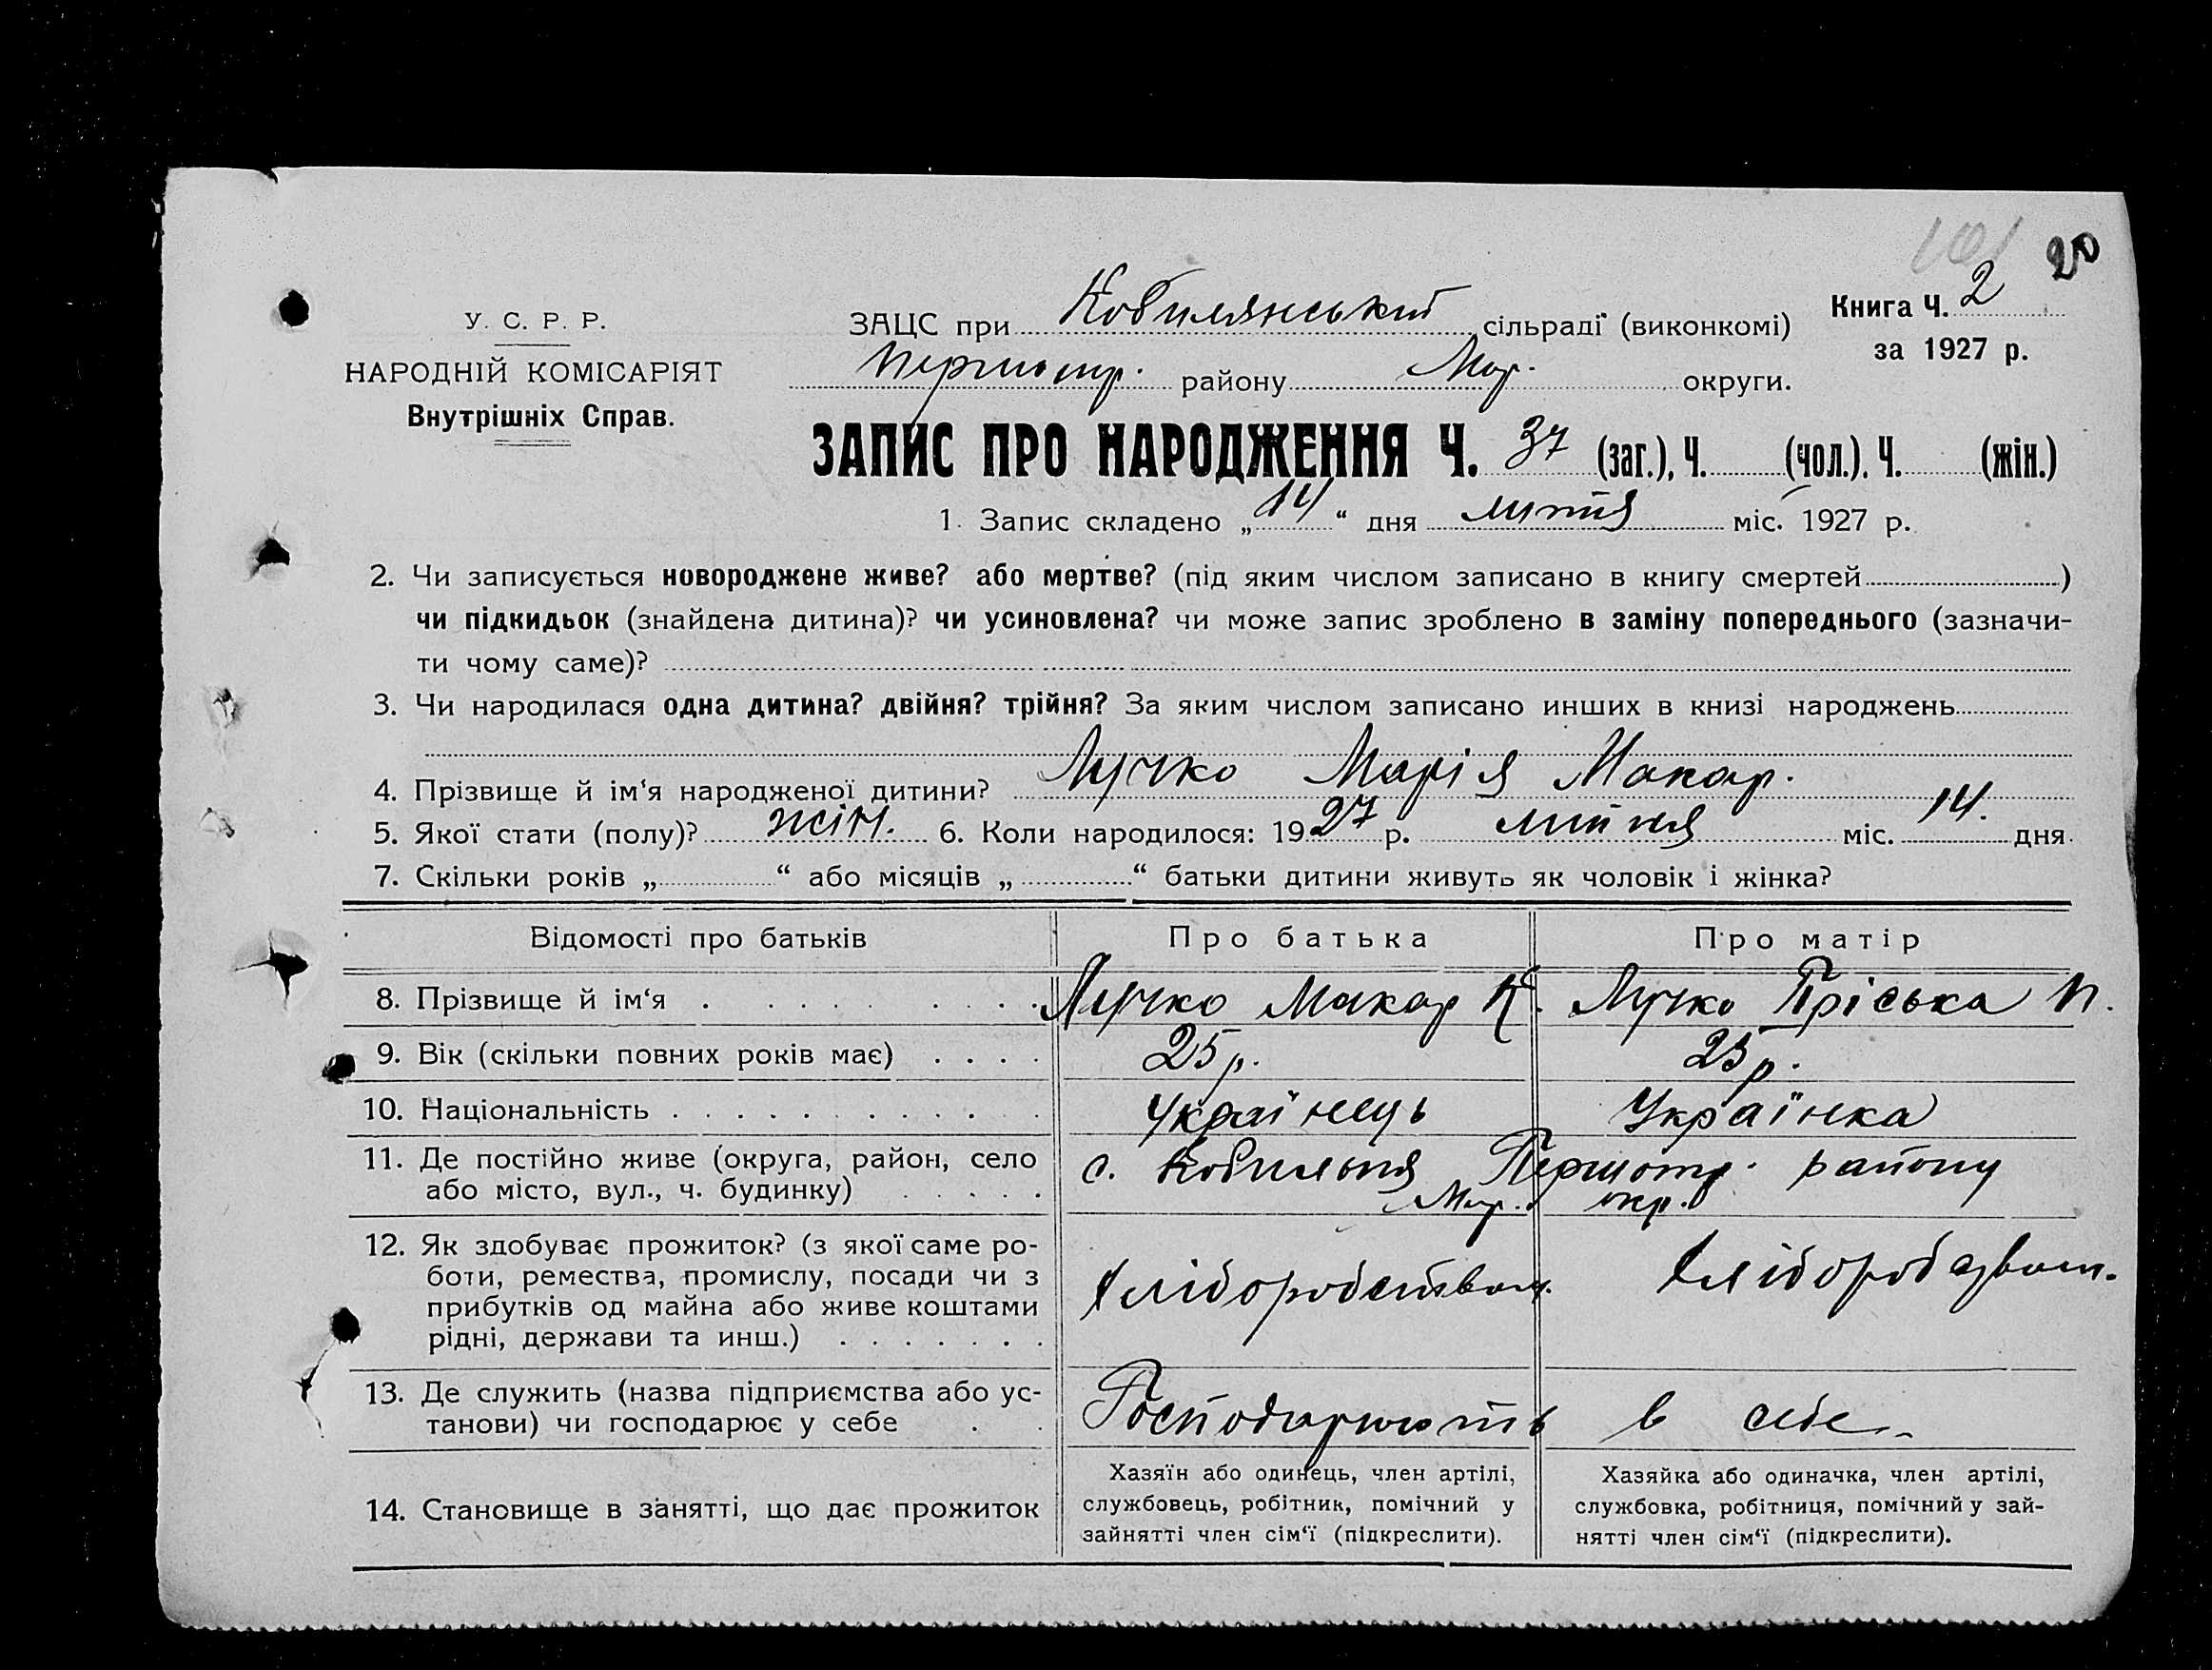 101 20
У. С. Р. Р.
НАРОДНІЙ КОМІСАРІЯТ
Внутрішніх Справ.
ЗАЦС при Кобилянський сільраді (виконкомі)
Першотр. району Мар. округи.
Книга Ч. 2
за 1927 р.
ЗАПИС ПРО НАРОДЖЕННЯ Ч. 37 (заг.), Ч. (чол.). Ч. (жін.)
1. Запис складено „14“ дня міс. 1927 р.
2. Чи записується новороджене живе? або мертве? (під яким числом записано в книгу смертей )
чи підкидьок (знайдена дитина)? чи усиновлена? чи може запис зроблено в заміну попереднього (зазначи-
ти чому саме)?
3. Чи народилася одна дитина? двійня? трійня? За яким числом записано инших в книзі народжень
4. Прізвище й ім‘я народженої дитини? Лучко Марія Макар.
5. Якої стати (полу)? жін. 6. Коли народилося: 1927 р. липня міс. 14. дня
7. Скільки років „ “ або місяців „ “ батьки дитини живуть як чоловік і жінка?
Відомості про батьків Про батька Про матір
8. Прізвище й ім‘я . . . . . . . Лучко Макар К. Лучко Пріська П.
9. Вік (скільки повних років має) . . . . 25 р. 23 р.
10. Національність . . . . . . . . . . . Українець Українка
11. Де постійно живе (округа, район, село
або місто, вул., ч. будинку) . . . . .
с. Кобильня Першотр. району
Мар. окр.
12. Як здобуває прожиток? (з якої саме ро-
боти, ремества, промислу, посади чи з
прибутків од майна або живе коштами
рідні, держави та инш.) . . . . . . .
Хліборобством. Хліборобством.
13. Де служить (назва підприємства або ус-
танови) чи господарює у себе . .
Господарюють в себе
14. Становище в занятті, що дає прожиток
Хазяїн або одинець, член артілі,
службовець, робітник, помічний у
зайнятті член сім‘ї (підкреслити).
Хазяйка або одиначка, член артілі,
службовка, робітниця, помічний у зай-
нятті член сім‘ї (підкреслити).